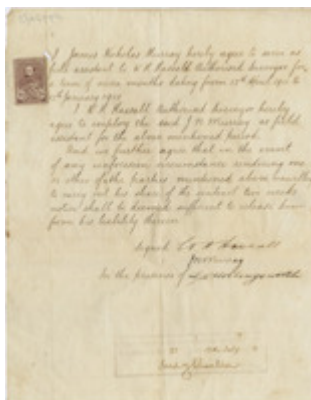 I James Nicholas Murray hereby agree to serve as
field assistant to W R Hassall Authorised Surveyor for
a term of nine months dating from 15th April 1911 to
15th January 1912
I W R Hassall Authorised Surveyor hereby
agree to employ the said J N Murray as field
assistant for the above mentioned period.
And we further agree that in the event
of any unforeseen circumstance rendering one
or other of the parties mentioned above unwilling
to carry out his share of the contract two weeks
notice shall be deemed sufficient to release him
from his liability therein
Signed W R Hassall
J N Murray
In the presence of